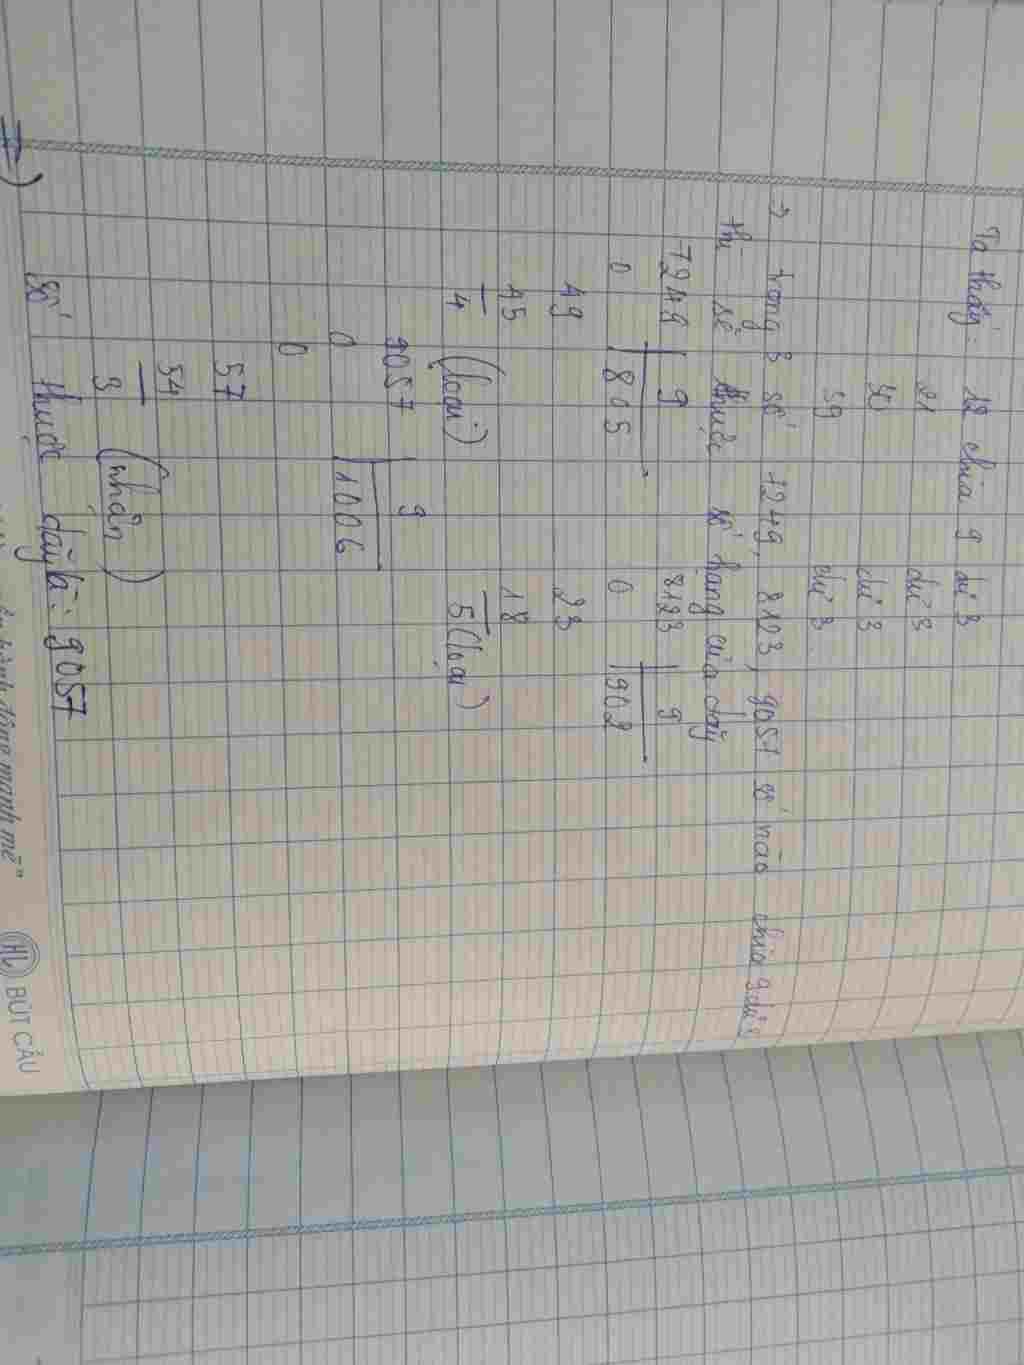 Ta thấy: 12 chia 9 dư 3
21 dư 3
30 dư 3
39 dư 3
→ trong 3 số 7249, 8123, 9057 số nào chia 9 dư 3
thì sẽ thuộc số hạng của dãy
7249 | 9 8123 | 9
0 805 0 902
49 23
45 18
4 (loại) 5 (loại)
9057 | 9
0 1006
0
57
54
3 (nhận)
=) số thuộc dãy là: 9057
hành động mạnh mẽ"
HL BÚT CẦU